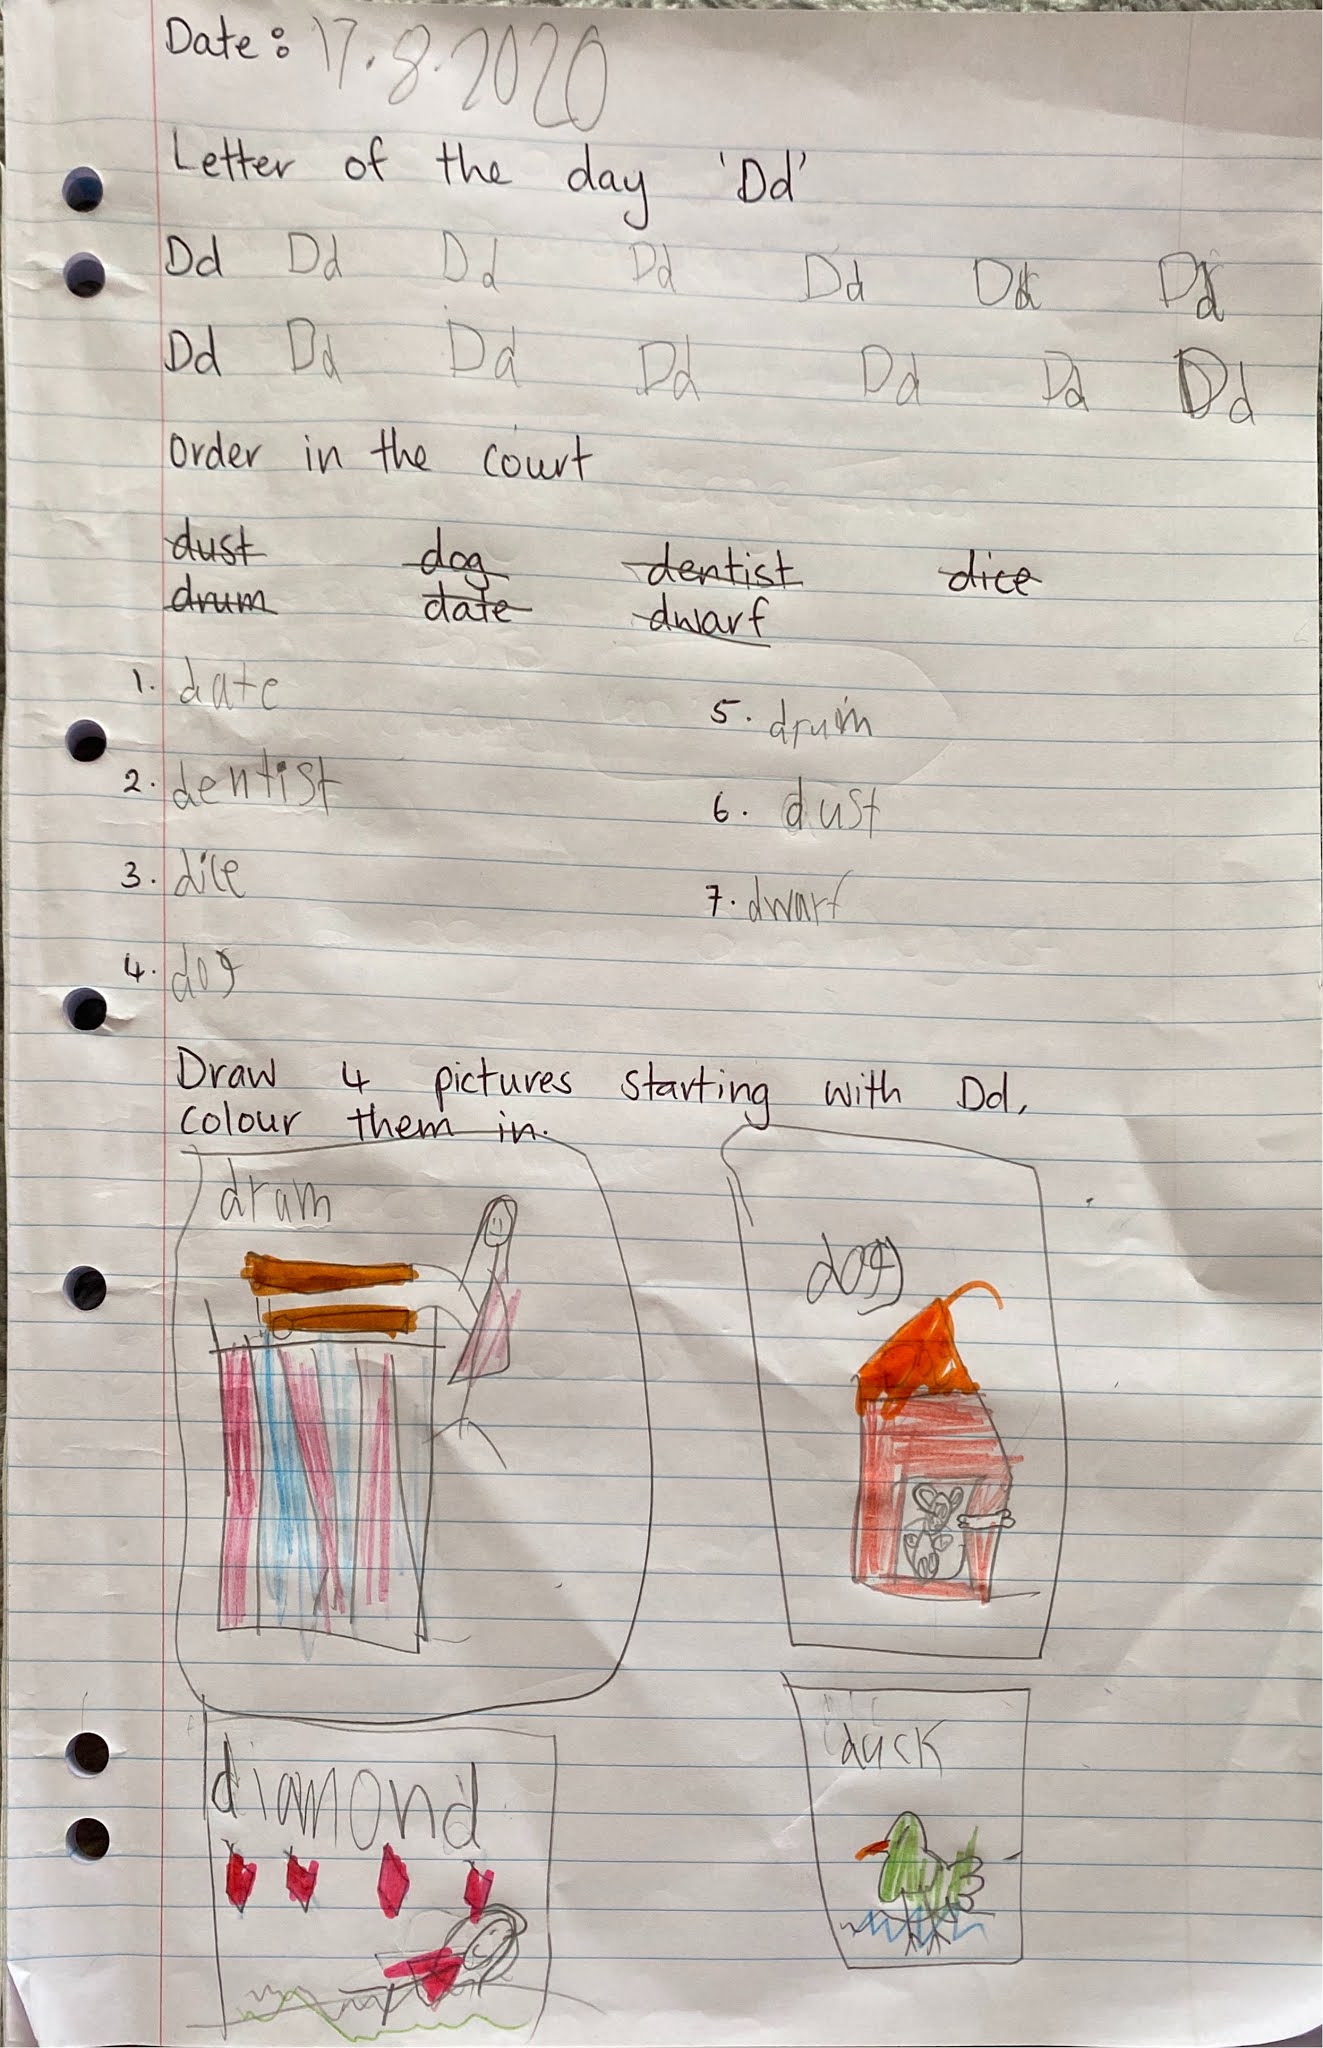 Date: 17.8.2020
Letter of the day 'Dd'
Dd Dd Dd Dd Dd Dd Dd
Dd Dd Dd Dd Dd Dd Dd
Order in the court
dust dog dentist dice
drum date dwarf
1. date
2. dentist
3. dice
4. dog
5. drum
6. dust
7. dwarf
Draw 4 pictures starting with Dd.
Colour them in.
drum
dog
diamond
duck